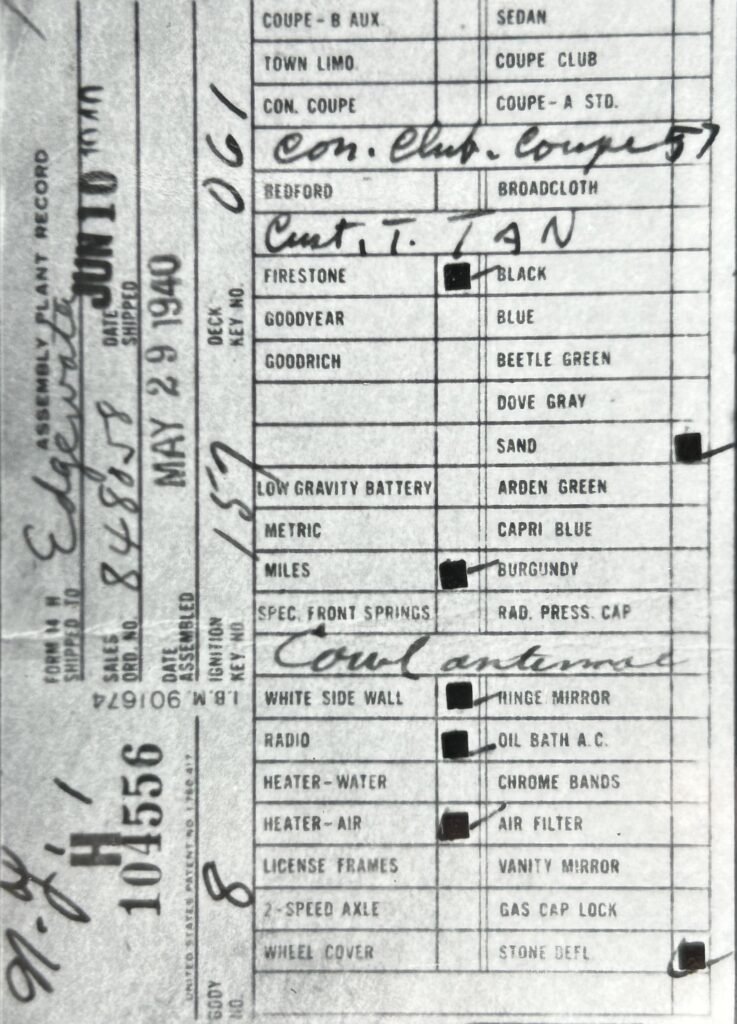 COUPE-B AUX. SEDAN
TOWN LIMO. COUPE CLUB
CON. COUPE COUPE-A STD.
Con. Club. Coupe 57
BEDFORD BROADCLOTH
Cust. T. TAN
FIRESTONE BLACK
GOODYEAR BLUE
GOODRICH BEETLE GREEN
DOVE GRAY
SAND
LOW GRAVITY BATTERY ARDEN GREEN
METRIC CAPRI BLUE
MILES BURGUNDY
SPEC. FRONT SPRINGS RAD. PRESS. CAP
Cowl antennae
WHITE SIDE WALL HINGE MIRROR
RADIO OIL BATH A.C.
HEATER-WATER CHROME BANDS
HEATER-AIR AIR FILTER
LICENSE FRAMES VANITY MIRROR
2-SPEED AXLE GAS CAP LOCK
WHEEL COVER STONE DEFL
FORM 14 H ASSEMBLY PLANT RECORD
SHIPPED TO Edgewata
SALES ORD. NO. 848058 DATE SHIPPED JUN 10 1940
DATE ASSEMBLED MAY 29 1940
IGNITION KEY NO. 157 DECK KEY NO. 061
I.B.M. 901674
H
104556
UNITED STATES PATENT NO. 1780417
BODY NO. 8